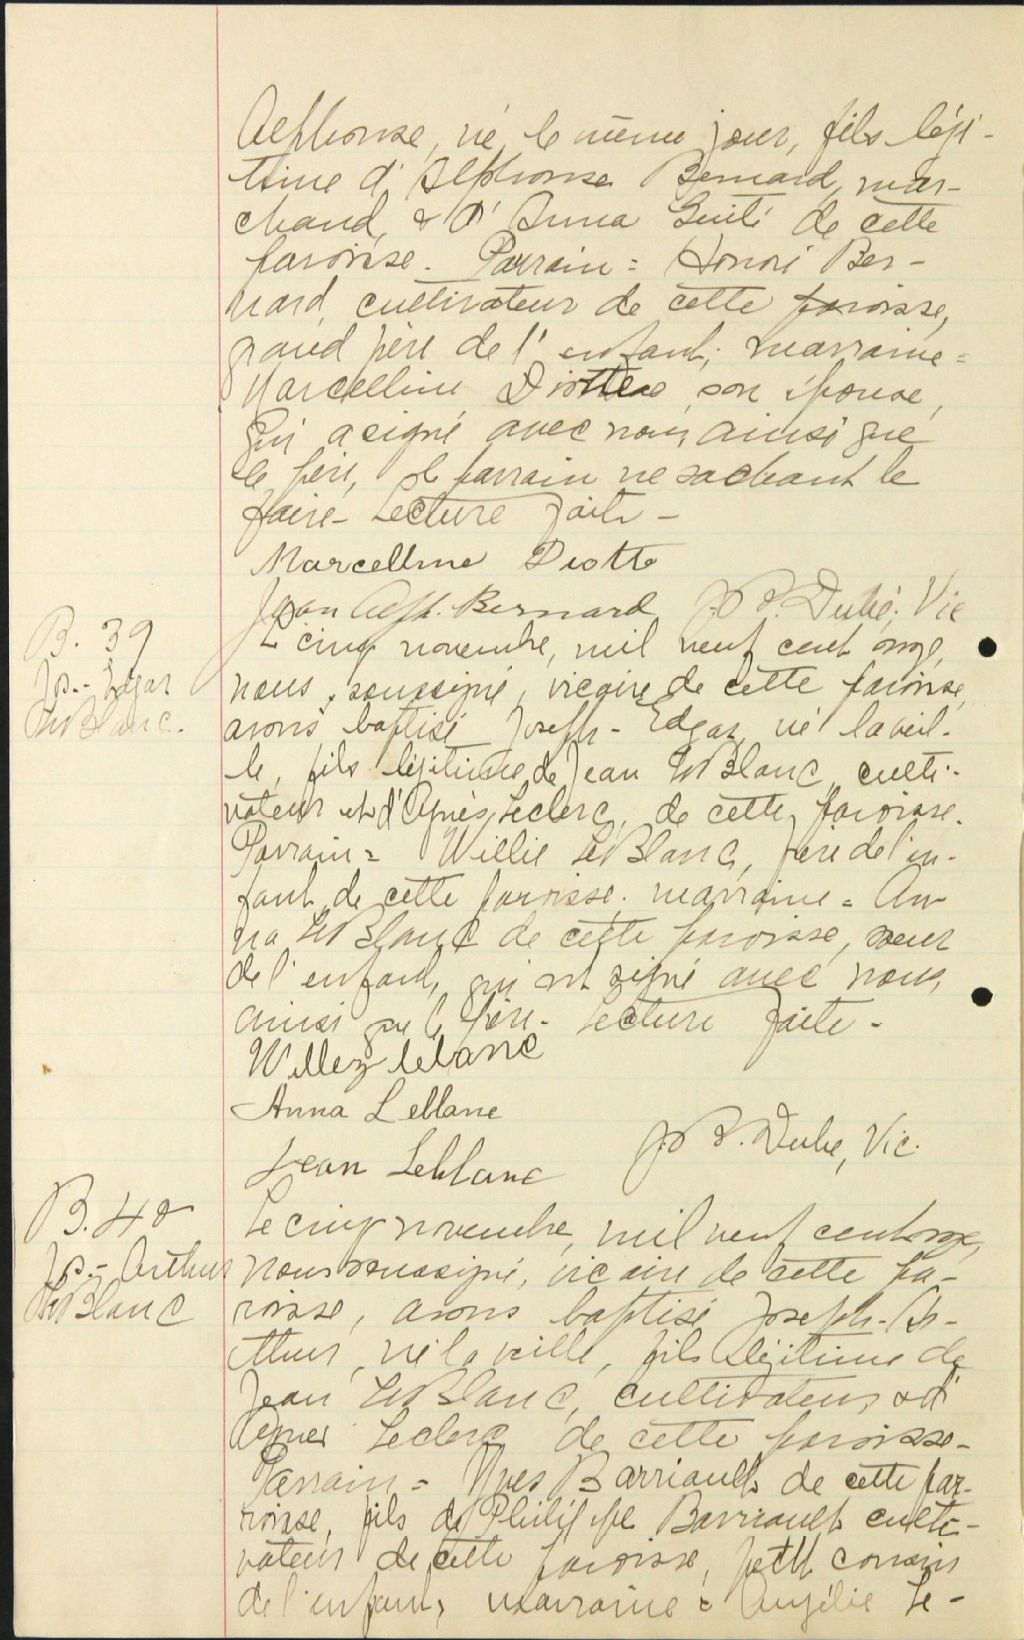 Alphonse, né le même jour, fils légi-
time d'Alphonse Bernard, mar-
chand, & d'Anna Guité de cette
paroisse. Parrain = Honoré Ber-
nard, cultivateur de cette paroisse,
grand père de l'enfant; marraine =
Marcelline Diotte son épouse,
qui a signé avec nous ainsi que
le père, le parrain ne sachant le
faire - Lecture faite -
Marcelline Diotte
Jean Alph. Bernard J. D. Dubé, Vic
B. 39
Jos.- Edgar
LeBlanc.
Le cinq novembre, mil neuf cent onze,
nous, soussigné, vicaire de cette paroisse,
avons baptisé Joseph - Edgar, né la veil-
le, fils légitime de Jean LeBlanc, culti-
vateur et d'Agnès Leclerc, de cette paroisse.
Parrain = Willie LeBlanc, frère de l'en-
fant, de cette paroisse. marraine = An-
na LeBlanc de cette paroisse, soeur
de l'enfant, qui ont signé avec nous,
ainsi que le père - Lecture faite -
Willez leblanc
Anna Leblanc
Jean Leblanc
Dubé, Vic.
B. 40
Jos.- Arthur
LeBlanc
Le cinq novembre, mil neuf cent onze,
nous soussigné, vicaire de cette pa-
roisse, avons baptisé Joseph-Ar-
thur, né la veille, fils légitime de
Jean LeBlanc, cultivateur, & d'
Agnes Leclerc de cette paroisse -
Parrain = Yves Barriault de cette par-
roisse, fils de Philippe Barriault culti-
vateur de cette paroisse, petit cousin
de l'enfant, marraine = Angélie Le-